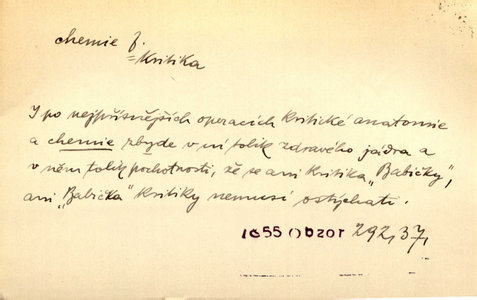 chemie f.
= Kritika
I po nejpřísnějších operacích kritické anatomie
a chemie zbyde v ní tolik zdravého jádra a
v něm tolik pochotnosti, že se ani kritika „Babičky",
ani „Babička" kritiky nemusí ostýchati.
1855 Obzor 292,37,